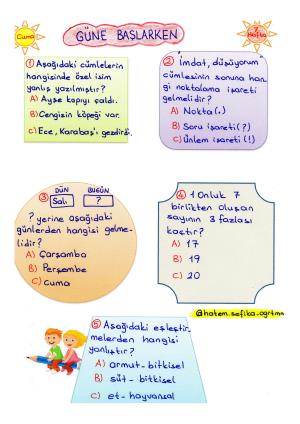 Cuma
GÜNE BAŞLARKEN
7.
Hafta
① Aşağıdaki cümlelerin
hangisinde özel isim
yanlış yazılmıştır?
A) Ayşe kapıyı çaldı.
B) Cengisin köpeği var.
C) Ece, Karabaş'ı gezdirdi.
② İmdat, düşüyorum
cümlesinin sonuna han
gi noktalama işareti
gelmelidir?
A) Nokta (.)
B) Soru işareti (?)
C) Ünlem işareti (!)
③ DÜN BUGÜN
Salı ?
? yerine aşağıdaki
günlerden hangisi gelme-
lidir?
A) Çarşamba
B) Perşembe
C) Cuma
④ 1 Onluk 7
birlikten oluşan
sayının 3 fazlası
kaçtır?
A) 17
B) 19
C) 20
@hatem.sefika_ogrtmn
⑤ Aşağıdaki eşleştir-
melerden hangisi
yanlıştır?
A) armut - bitkisel
B) süt - bitkisel
C) et - hayvansal